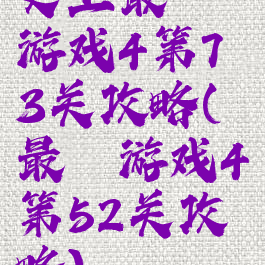 史上最
游戏4第7
3关攻略(
最 游戏4
第52关攻
略)